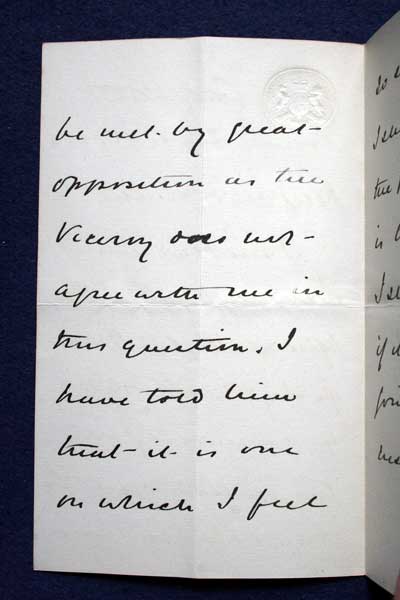 be met by great
opposition as the
Viceroy does not
agree with me in
this question. I
have told him
that it is one
on which I feel
is